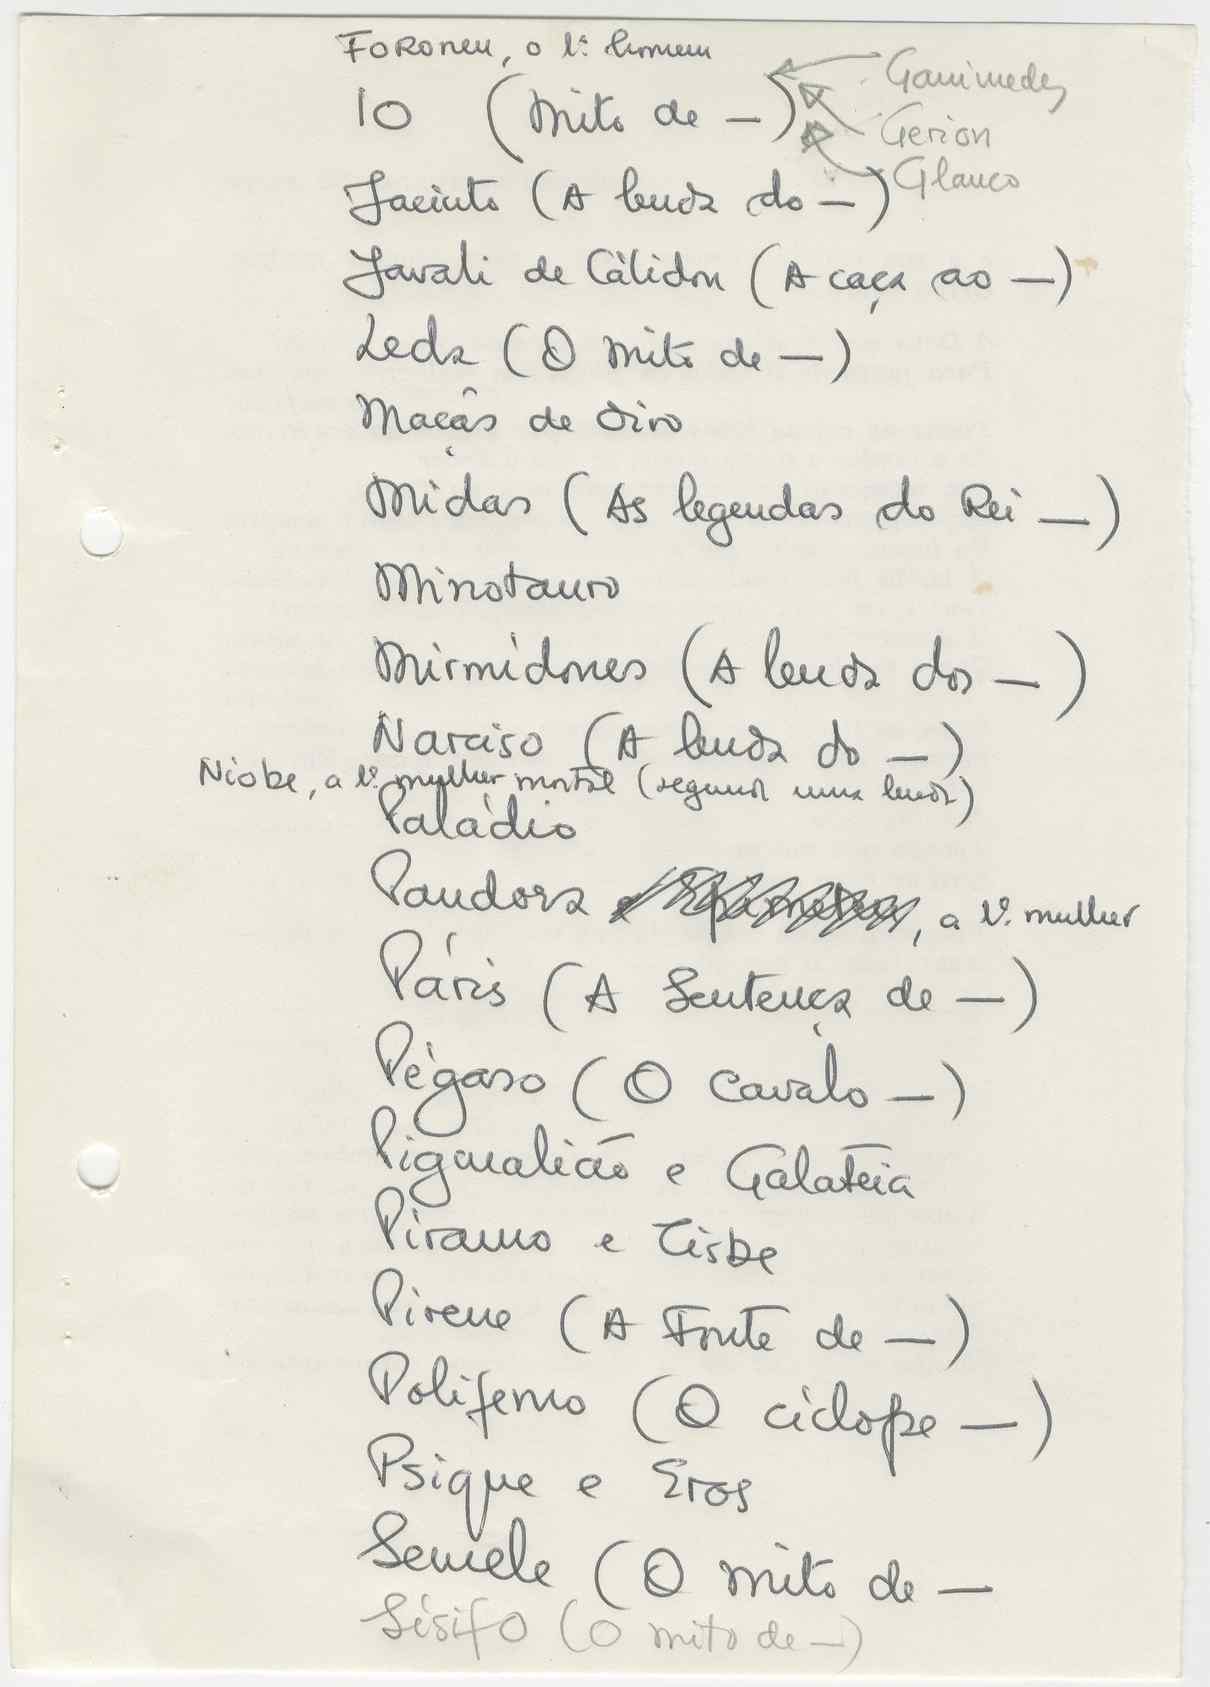 Foroneu, o 1º homem
Ganimedes
IO (Mito de —)
Gerion
Glauco
Jacinto (A lenda do —)
Javali de Cálidon (A caça ao —)
Leda (O mito de —)
Maçãs de Oiro
Midas (As legendas do Rei —)
Minotauro
Mirmídones (A lenda dos —)
Narciso (A lenda do —)
Níobe, a 1ª mulher mortal (segundo uma lenda)
Paládio
Pandora, a 1ª mulher
Páris (A Sentença de —)
Pégaso (O Cavalo —)
Pigmalião e Galateia
Píramo e Tisbe
Pirene (A Fonte de —)
Polifemo (O ciclope —)
Psique e Eros
Semele (O mito de —
Sísifo (O mito de —)